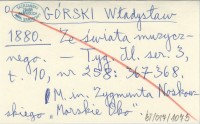 GÓRSKI Władysław
1880. Ze świata muzycz-
nego. — Tyg. Il. ser. 3,
t. 10, nr 258: 367-368,
M. in. Zygmunta Noskow-
skiego "Morskie Oko"